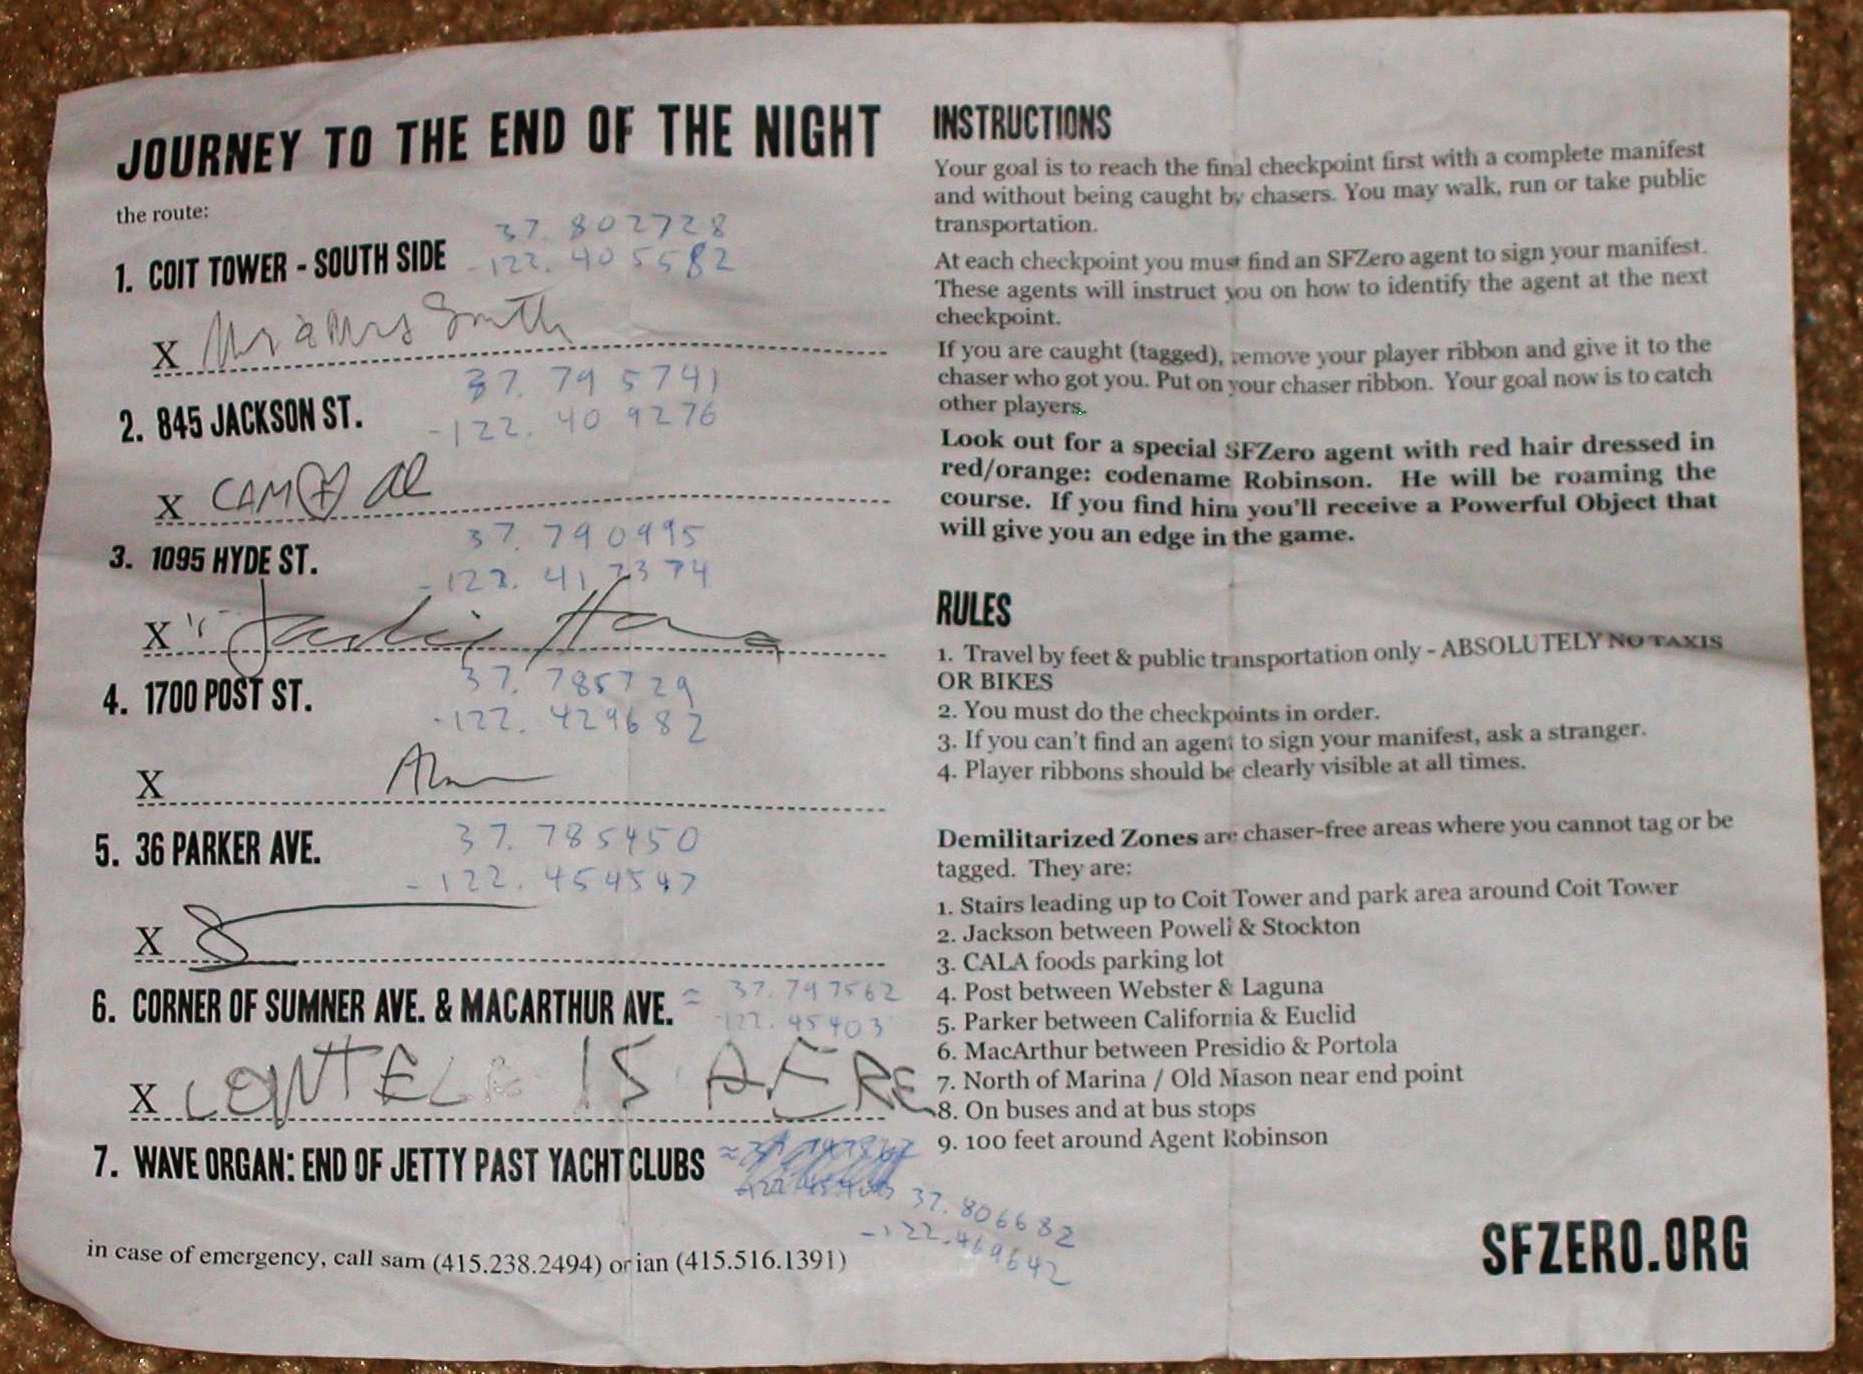 JOURNEY TO THE END OF THE NIGHT
the route:
37.802728
1. COIT TOWER - SOUTH SIDE
-122.405582
X Mr & Mrs Smith
37.795741
2. 845 JACKSON ST.
-122.409276
X CAM
37.790995
3. 1095 HYDE ST.
-122.417374
X
37.785729
4. 1700 POST ST.
-122.429682
X
5. 36 PARKER AVE.
37.785450
-122.454547
X
6. CORNER OF SUMNER AVE. & MACARTHUR AVE. ≈ 37.797562
-122.45403
X IS HERE
7. WAVE ORGAN: END OF JETTY PAST YACHT CLUBS ≈
37.806682
-122.469642
in case of emergency, call sam (415.238.2494) or ian (415.516.1391)
INSTRUCTIONS
Your goal is to reach the final checkpoint first with a complete manifest
and without being caught by chasers. You may walk, run or take public
transportation.
At each checkpoint you must find an SFZero agent to sign your manifest.
These agents will instruct you on how to identify the agent at the next
checkpoint.
If you are caught (tagged), remove your player ribbon and give it to the
chaser who got you. Put on your chaser ribbon. Your goal now is to catch
other players.
Look out for a special SFZero agent with red hair dressed in
red/orange: codename Robinson. He will be roaming the
course. If you find him you'll receive a Powerful Object that
will give you an edge in the game.
RULES
1. Travel by feet & public transportation only - ABSOLUTELY NO TAXIS
OR BIKES
2. You must do the checkpoints in order.
3. If you can't find an agent to sign your manifest, ask a stranger.
4. Player ribbons should be clearly visible at all times.
Demilitarized Zones are chaser-free areas where you cannot tag or be
tagged. They are:
1. Stairs leading up to Coit Tower and park area around Coit Tower
2. Jackson between Powell & Stockton
3. CALA foods parking lot
4. Post between Webster & Laguna
5. Parker between California & Euclid
6. MacArthur between Presidio & Portola
7. North of Marina / Old Mason near end point
8. On buses and at bus stops
9. 100 feet around Agent Robinson
SFZERO.ORG